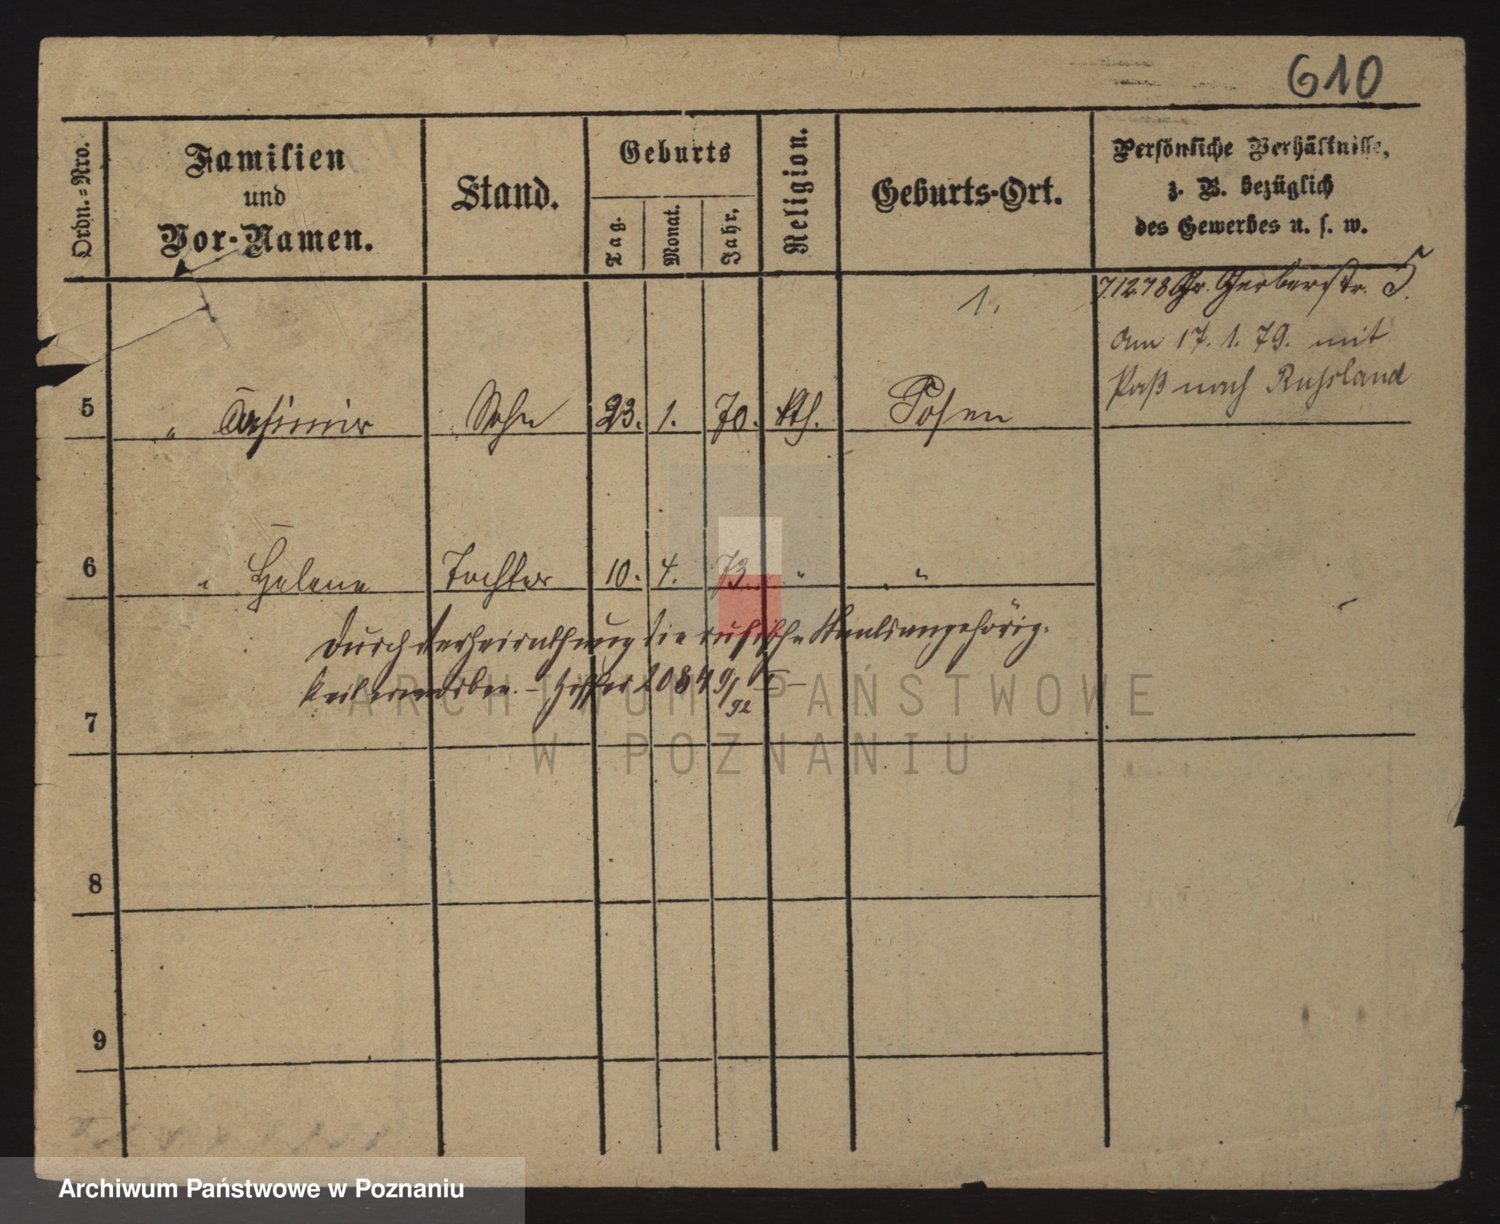 610
Ordn.-Nro.
Familien
und
Vor-Namen.
Stand.
Geburts
Tag.
Monat.
Jahr.
Religion.
Geburts-Ort.
Persönliche Verhältnisse,
z. B. bezüglich
des Gewerbes u. s. w.
1.
71278 Gr. Gerberstr. 5.
Am 17. 1. 79. mit
Paß nach Russland
5 " Casimir Sohn 23. 1. 70. kth. Posen
6 " Helene Tochter 10. 4. 73. " "
Durch Verheirathung die russische Staatsangehörig-
keit erworben. 2084 9/92
7
8
9
ARCHIWUM PAŃSTWOWE
W POZNANIU
Archiwum Państwowe w Poznaniu